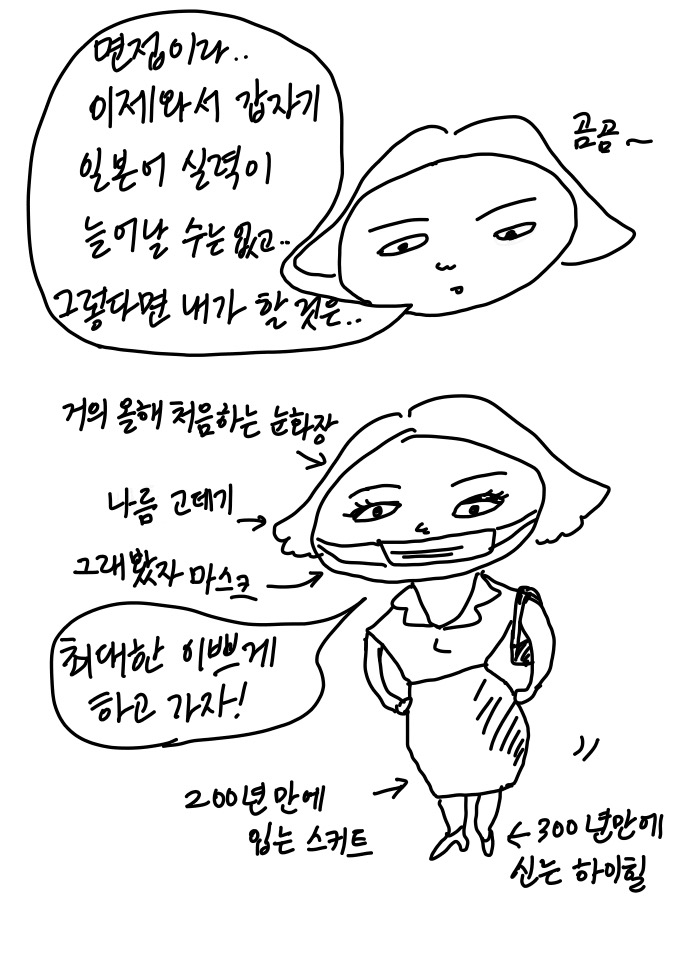 면접이라..
이제와서 갑자기
일본어 실력이
늘어날 수는 없고..
그렇다면 내가 할 것은..
곰곰~
거의 올해 처음하는 눈화장
나름 고데기
그래봤자 마스크
최대한 이쁘게
하고 가자!
200년만에
입는 스커트
300년만에
신는 하이힐